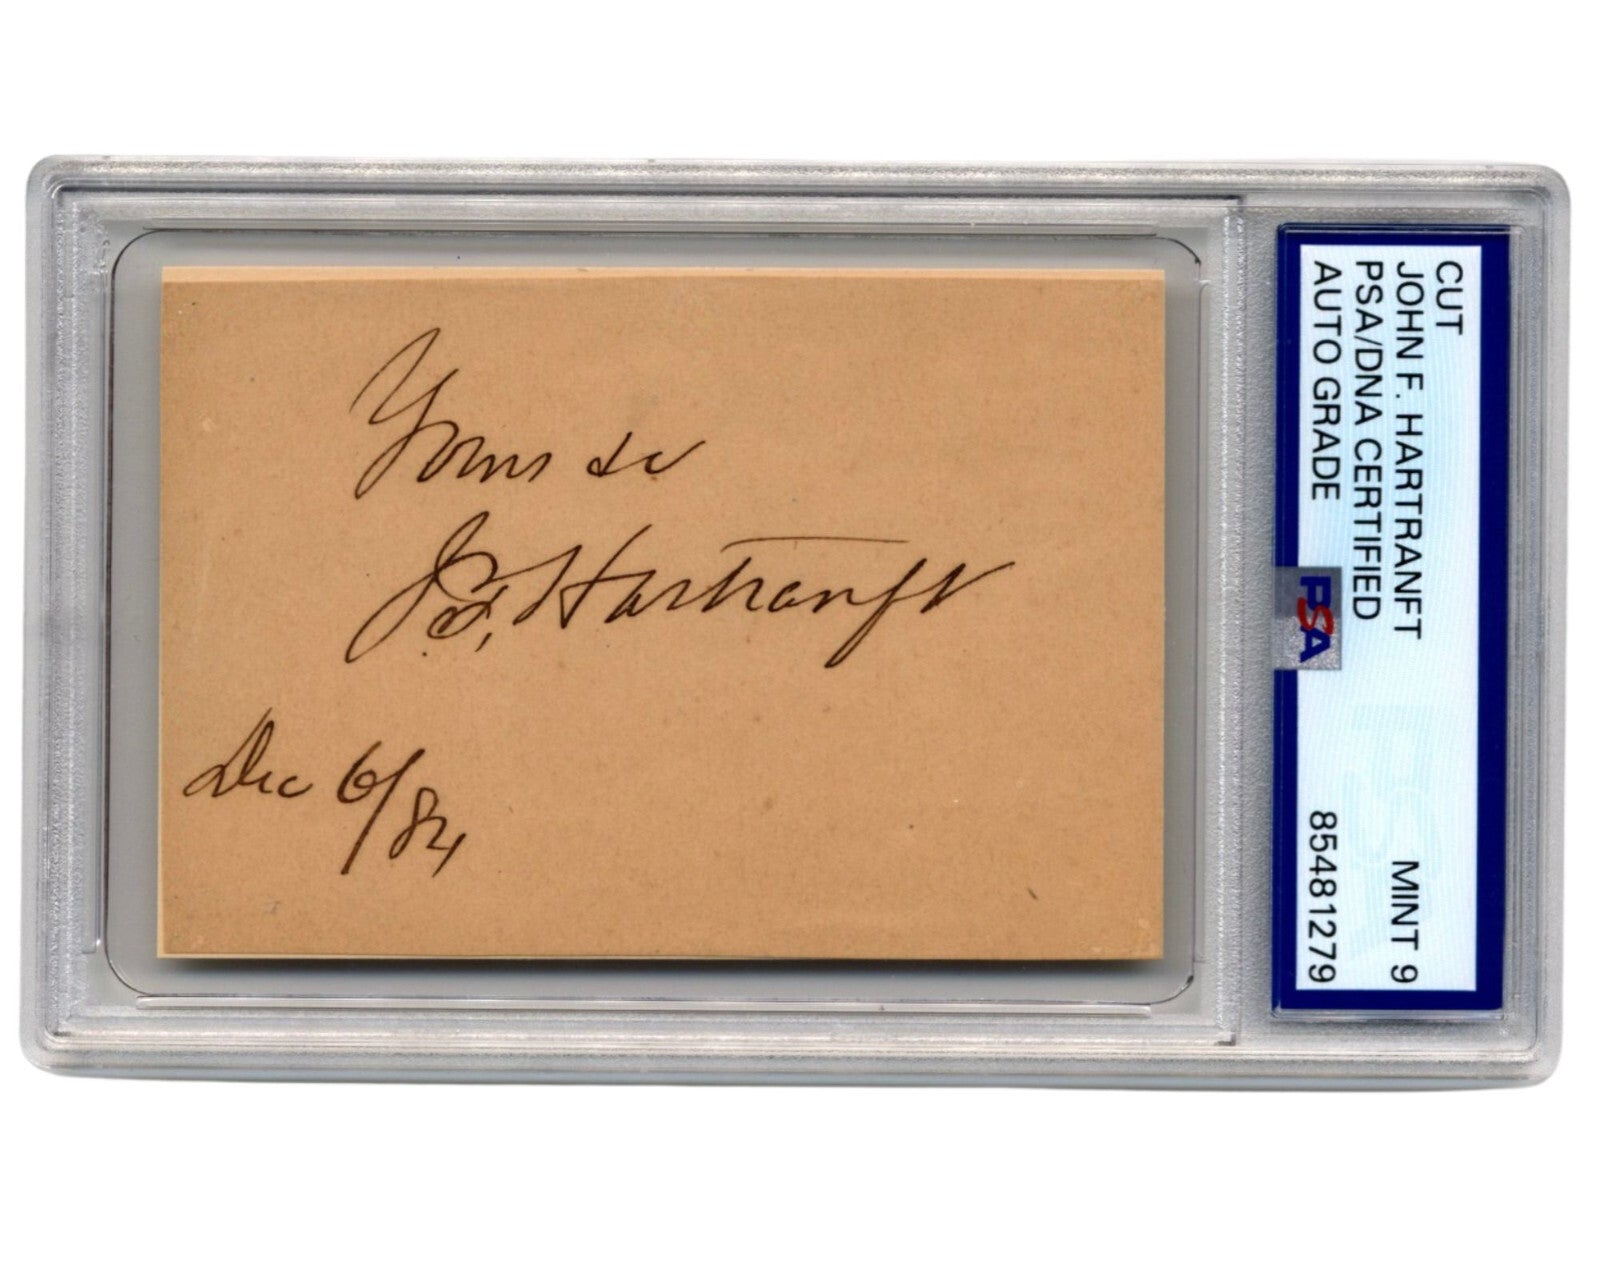 Yours &c
J. F. Hartranft
Dec 6/84
CUT
JOHN F. HARTRANFT
PSA/DNA CERTIFIED MINT 9
AUTO GRADE 85481279
PSA